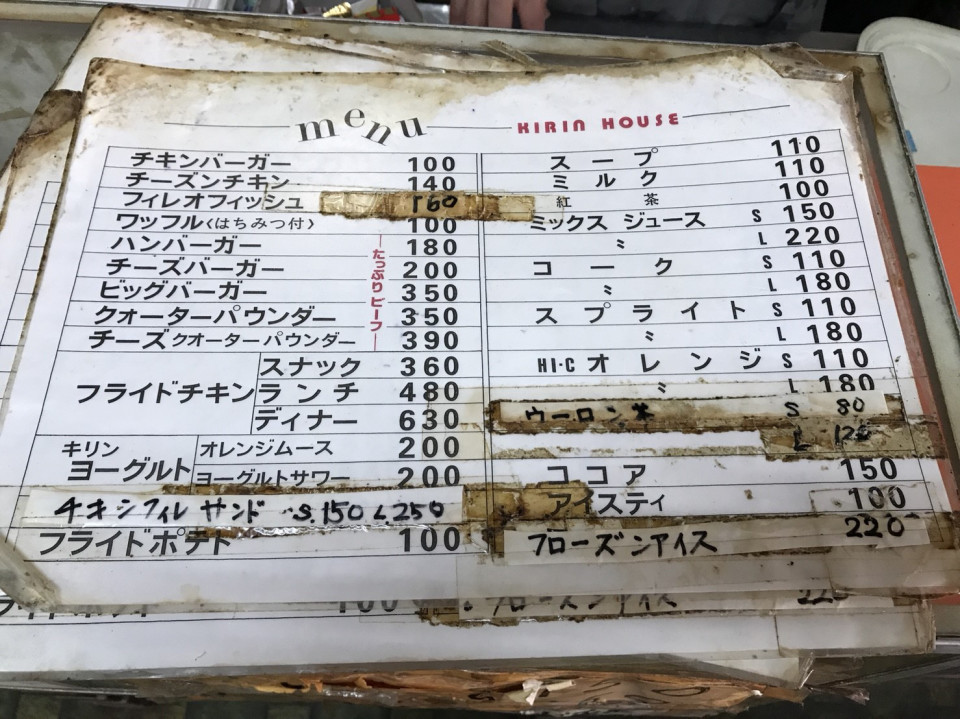 menu KIRIN HOUSE
チキンバーガー 100
チーズンチキン 140
フィレオフィッシュ 160
ワッフル〈はちみつ付〉 100
ハンバーガー 180
チーズバーガー 200
ビッグバーガー 350
クォーターパウンダー 350
チーズクオーターパウンダー 390
たっぷりビーフ
フライドチキン
スナック 360
ランチ 480
ディナー 630
キリン
ヨーグルト
オレンジムース 200
ヨーグルトサワー 200
チキンフィレサンド S.150 L.250
フライドポテト 100
スープ 110
ミルク 110
紅茶 100
ミックスジュース S 150
〃 L 220
コーク S 110
〃 L 180
スプライト S 110
〃 L 180
HI-C オレンジ S 110
〃 L 180
ウーロン茶 S 80
L 120
ココア 150
アイスティ 100
フローズンアイス 220
100
フローズンアイス